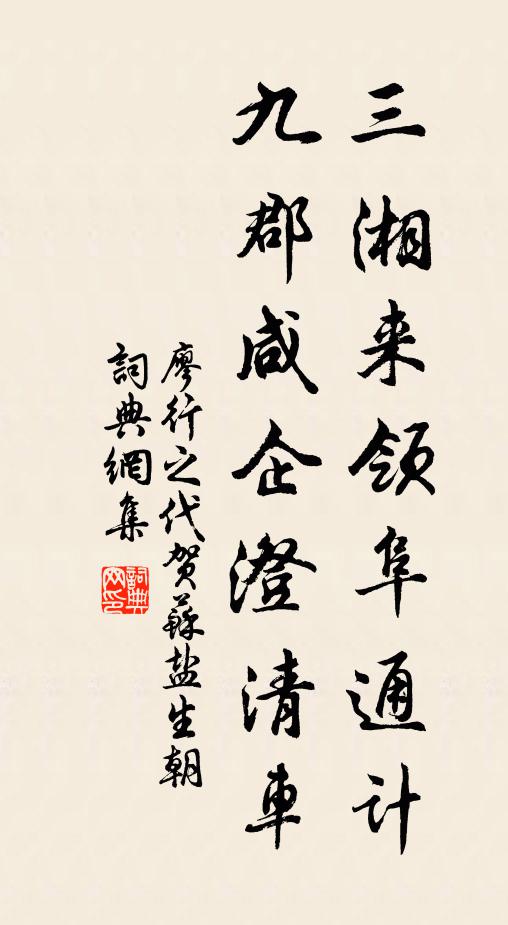 三湘来領阜通計
九郡咸企澄清車
廖行之代賀蘇盐生朝
詞典網集
詞典网印